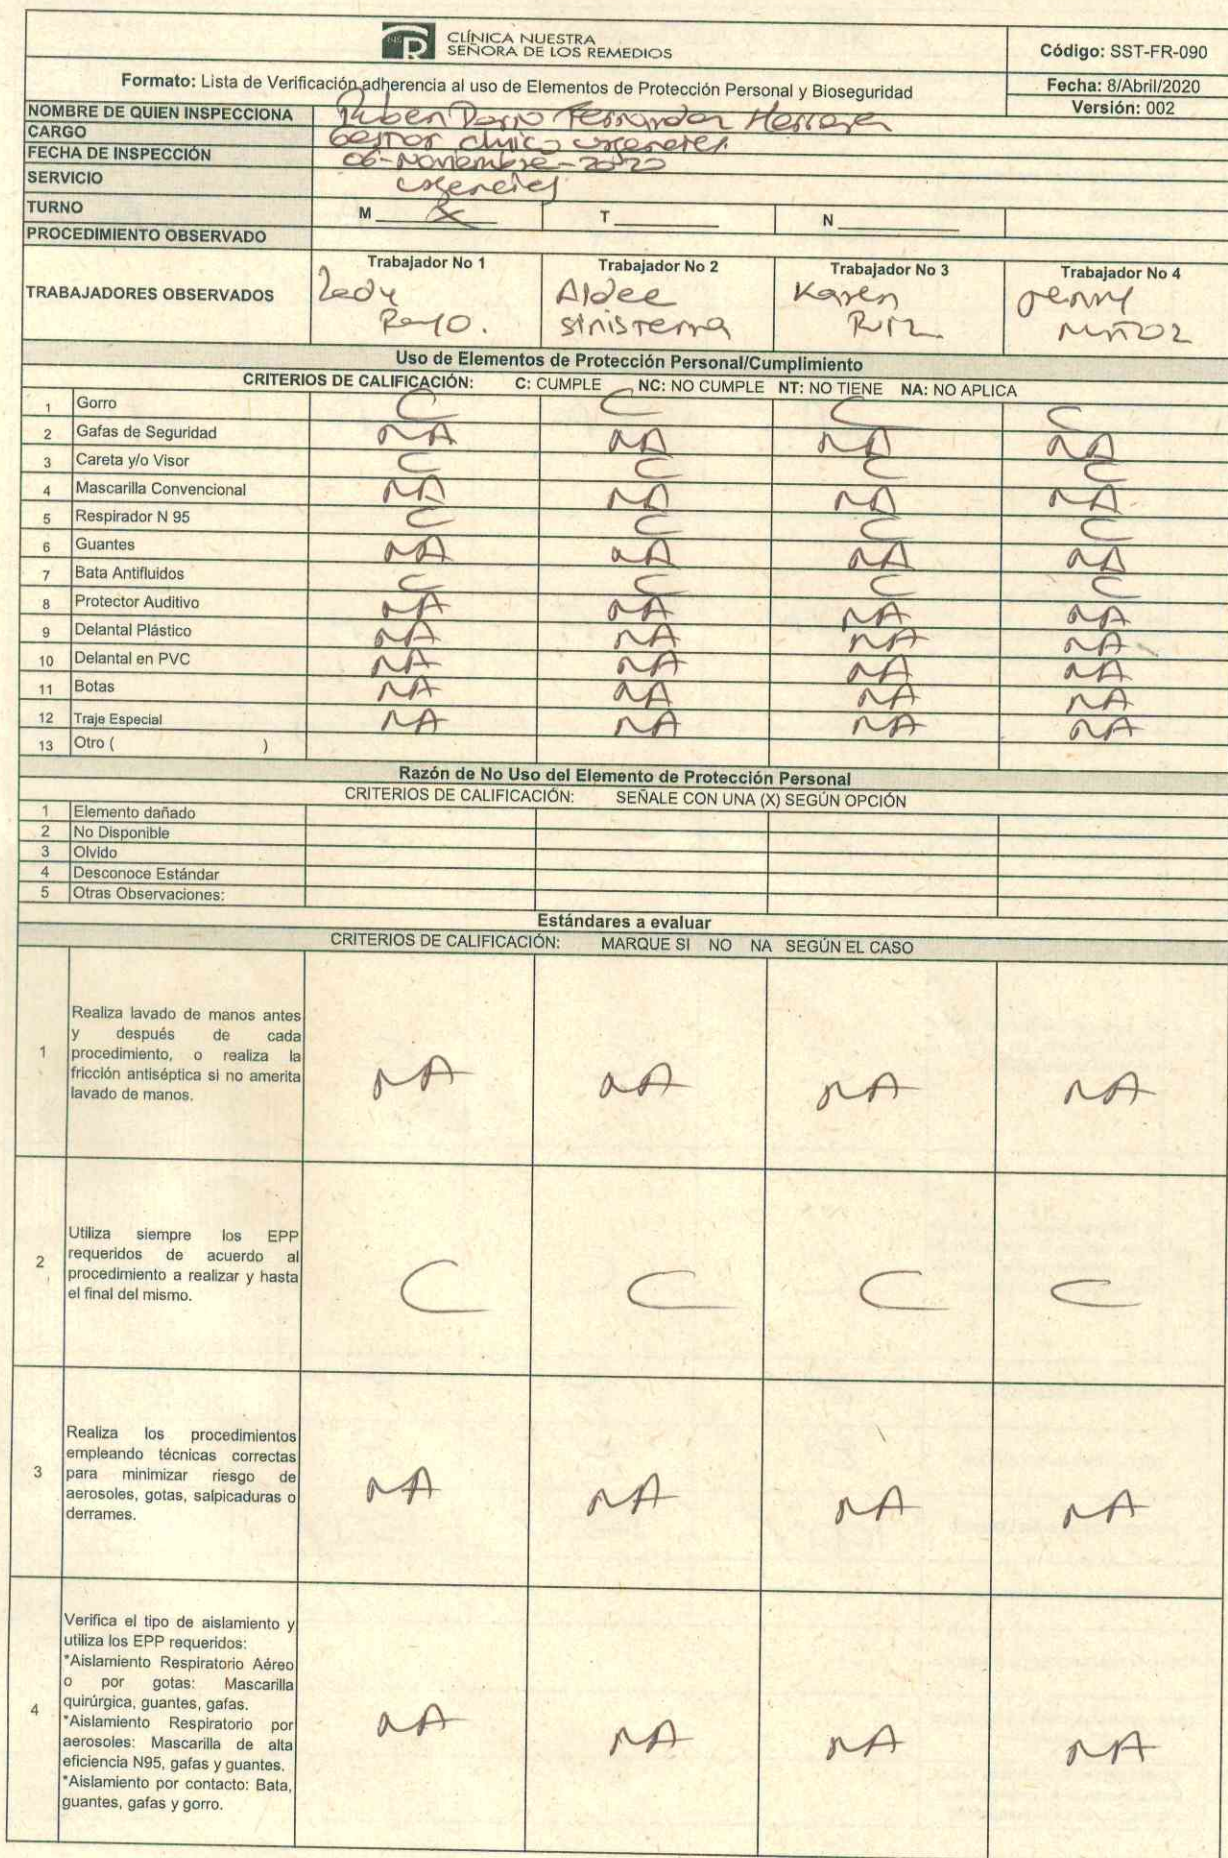 CLÍNICA NUESTRA
SEÑORA DE LOS REMEDIOS
Código: SST-FR-090
Formato: Lista de Verificación adherencia al uso de Elementos de Protección Personal y Bioseguridad
Fecha: 8/Abril/2020
Versión: 002
NOMBRE DE QUIEN INSPECCIONA Ruben Dario Fernandez Herrera
CARGO Gestor clinico urgencias.
FECHA DE INSPECCIÓN 06-Noviembre-2020
SERVICIO urgencias
TURNO M X T N
PROCEDIMIENTO OBSERVADO
TRABAJADORES OBSERVADOS
Trabajador No 1 Trabajador No 2 Trabajador No 3 Trabajador No 4
Aldee Karen Jenny
Rayo. sinisterra Ruiz Muñoz
Uso de Elementos de Protección Personal/Cumplimiento
CRITERIOS DE CALIFICACIÓN: C: CUMPLE NC: NO CUMPLE NT: NO TIENE NA: NO APLICA
1 Gorro C C C C
2 Gafas de Seguridad NA NA NA NA
3 Careta y/o Visor C C C C
4 Mascarilla Convencional NA NA NA NA
5 Respirador N 95 C C C C
6 Guantes NA NA NA NA
7 Bata Antifluidos C C C C
8 Protector Auditivo NA NA NA NA
9 Delantal Plástico NA NA NA NA
10 Delantal en PVC NA NA NA NA
11 Botas NA NA NA NA
12 Traje Especial NA NA NA NA
13 Otro ( )
Razón de No Uso del Elemento de Protección Personal
CRITERIOS DE CALIFICACIÓN: SEÑALE CON UNA (X) SEGÚN OPCIÓN
1 Elemento dañado
2 No Disponible
3 Olvido
4 Desconoce Estándar
5 Otras Observaciones:
Estándares a evaluar
CRITERIOS DE CALIFICACIÓN: MARQUE SI NO NA SEGÚN EL CASO
1
Realiza lavado de manos antes
y después de cada
procedimiento, o realiza la
fricción antiséptica si no amerita
lavado de manos.
NA NA NA NA
2
Utiliza siempre los EPP
requeridos de acuerdo al
procedimiento a realizar y hasta
el final del mismo.
C C C C
3
Realiza los procedimientos
empleando técnicas correctas
para minimizar riesgo de
aerosoles, gotas, salpicaduras o
derrames.
NA NA NA NA
4
Verifica el tipo de aislamiento y
utiliza los EPP requeridos:
*Aislamiento Respiratorio Aéreo
o por gotas: Mascarilla
quirúrgica, guantes, gafas.
*Aislamiento Respiratorio por
aerosoles: Mascarilla de alta
eficiencia N95, gafas y guantes.
*Aislamiento por contacto: Bata,
guantes, gafas y gorro.
NA NA NA NA